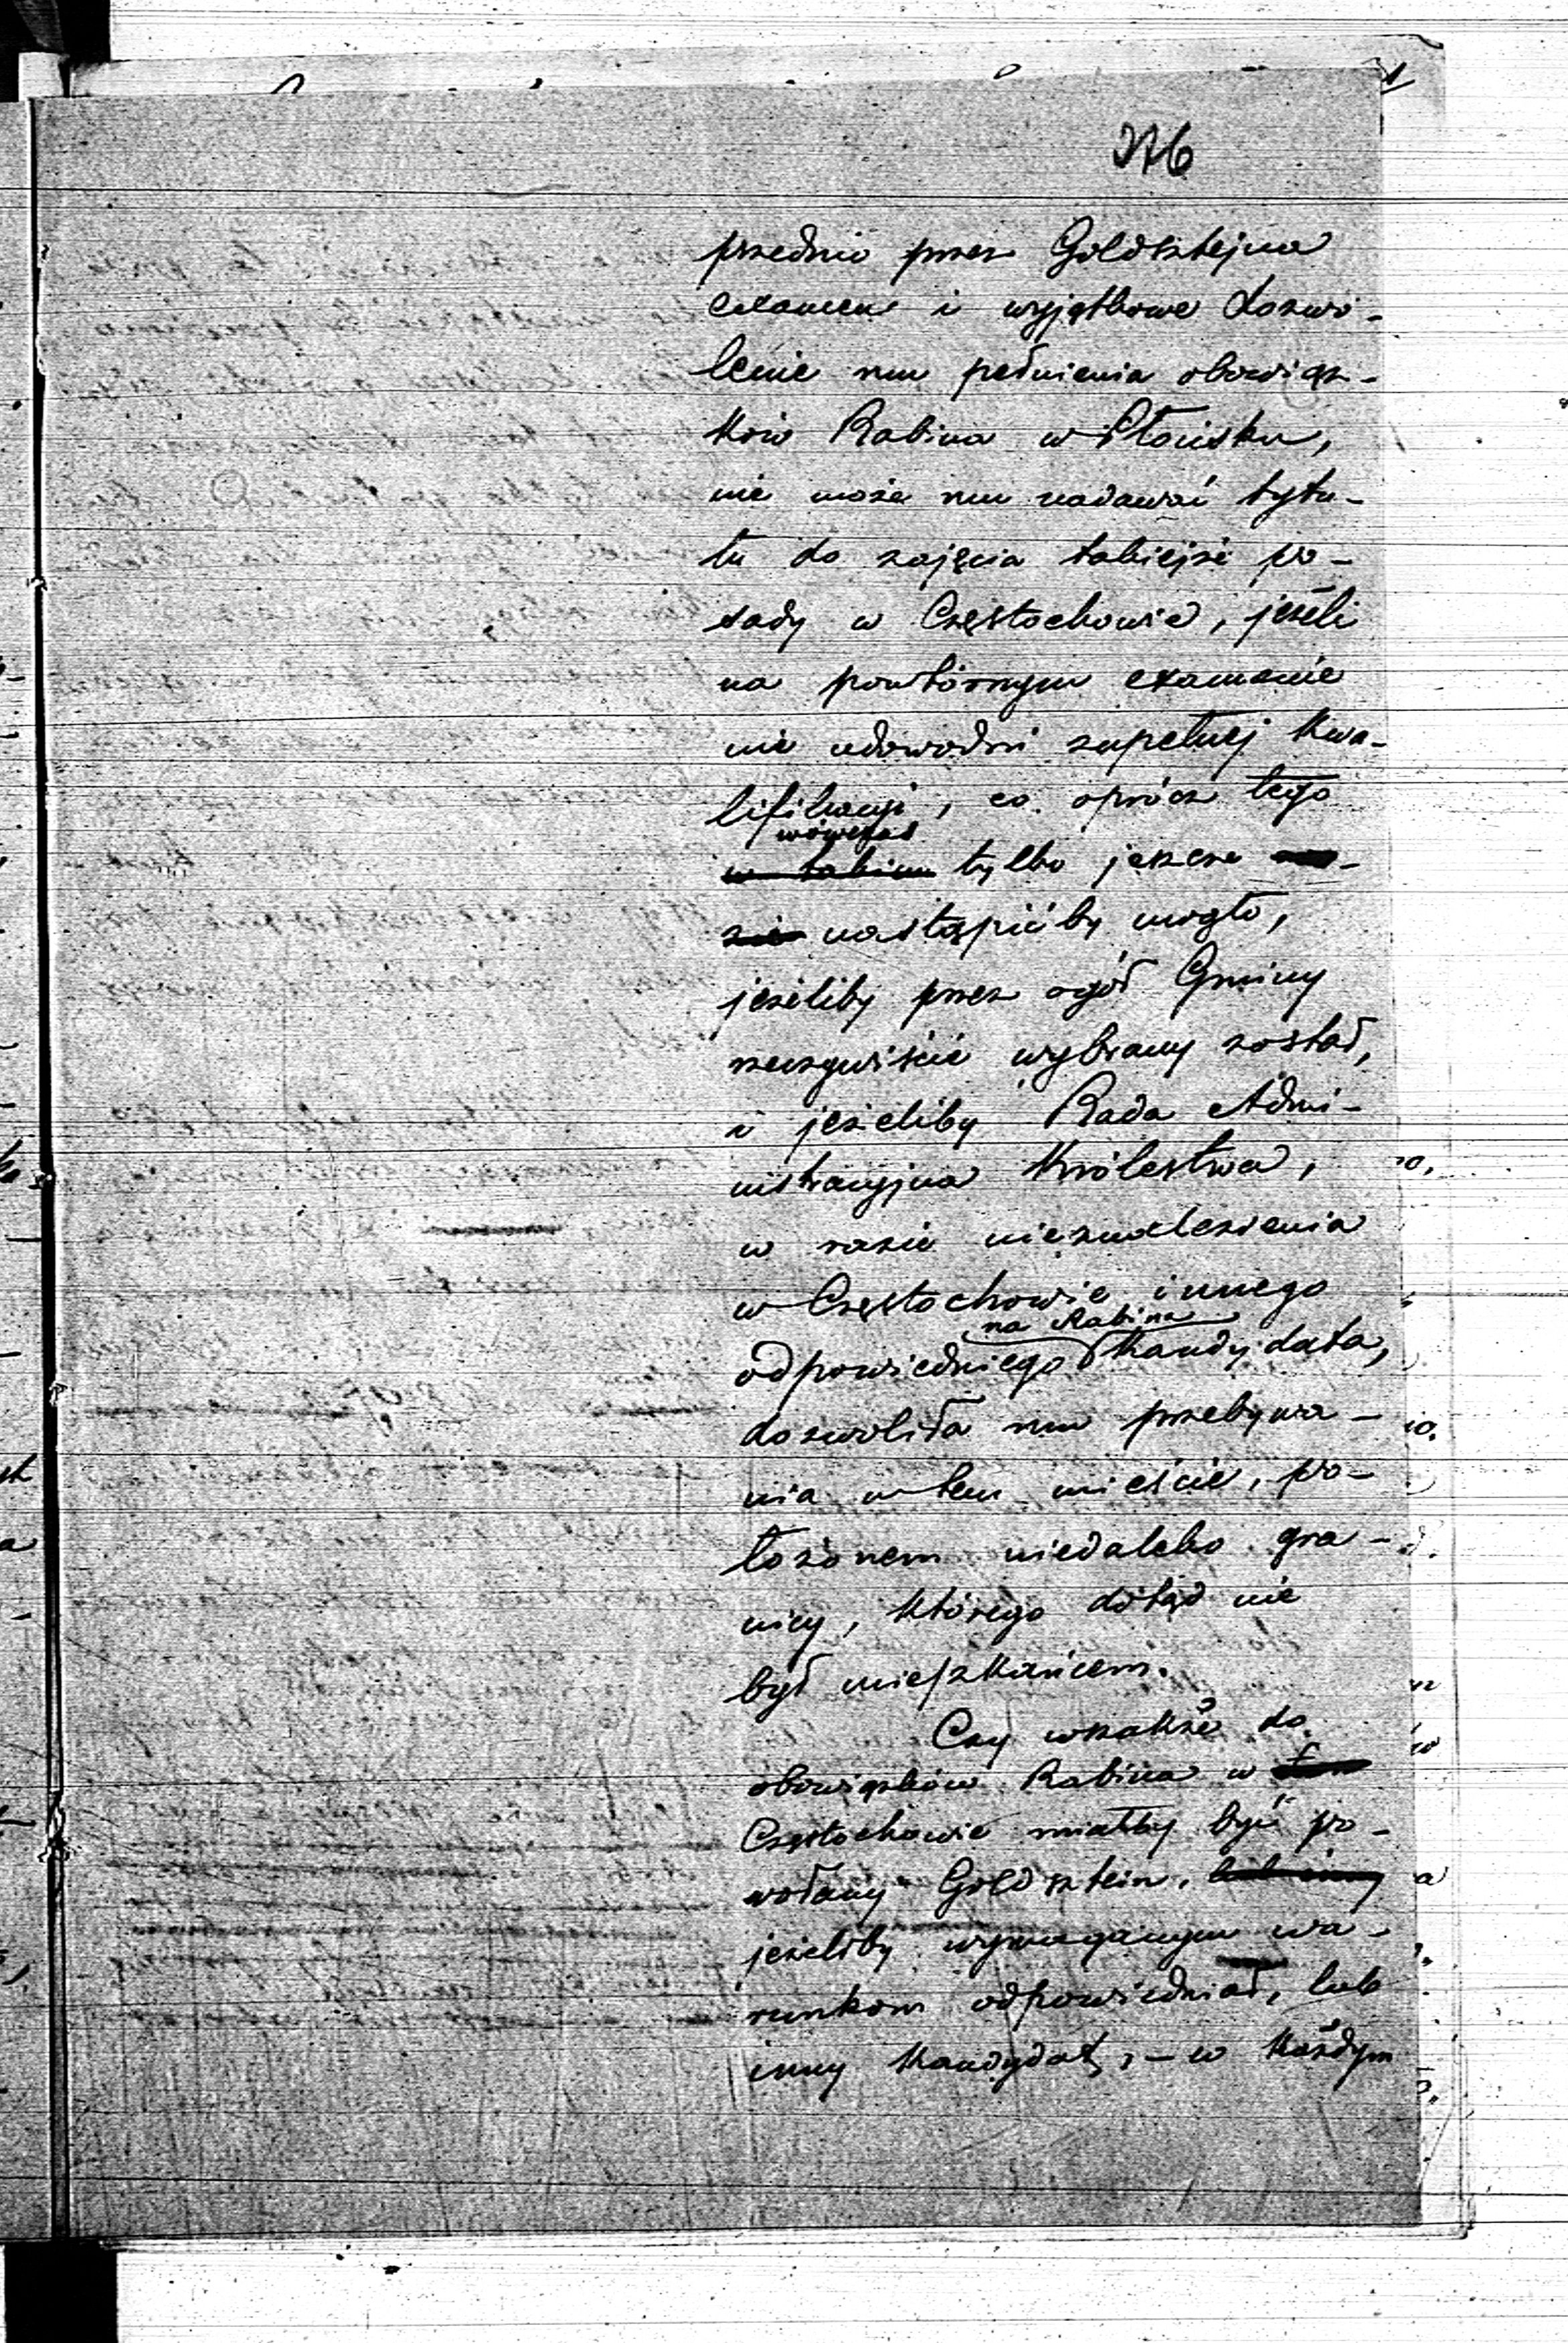 376
przednio przez Goldsztejna
examen i wyjątkowe dozwo-
lenie mu pełnienia obowiąz-
ków Rabina w Płońsku,
nie może mu nadawać tytu-
łu do zajęcia takiejże po-
sady w Częstochowie, jeżeli
na powtórnym examenie
nie udowodni zupełnej kwa-
lifikacyi, co oprócz tego
wówczas
w takim tylko jeszcze
zie nastąpićby mogło,
jeżeliby przez ogół Gminy
rzeczywiście wybrany został,
i jeżeliby Rada Admi-
nistracyjna Królestwa,
w razie nieznalezienia
w Częstochowie innego
na Rabina
odpowiedniego kandydata,
dozwoliła mu przebywa-
nia w tem mieście, po-
łożonem niedaleko gra-
nicy, którego dotąd nie
był mieszkańcem.
Czy wszakże do
obowiązków Rabina w
Częstochowie miałby być po-
wołany Goldsztein,
jeżeliby wymaganym wa-
runkom odpowiedniał, lub
inny kandydat, – w każdym